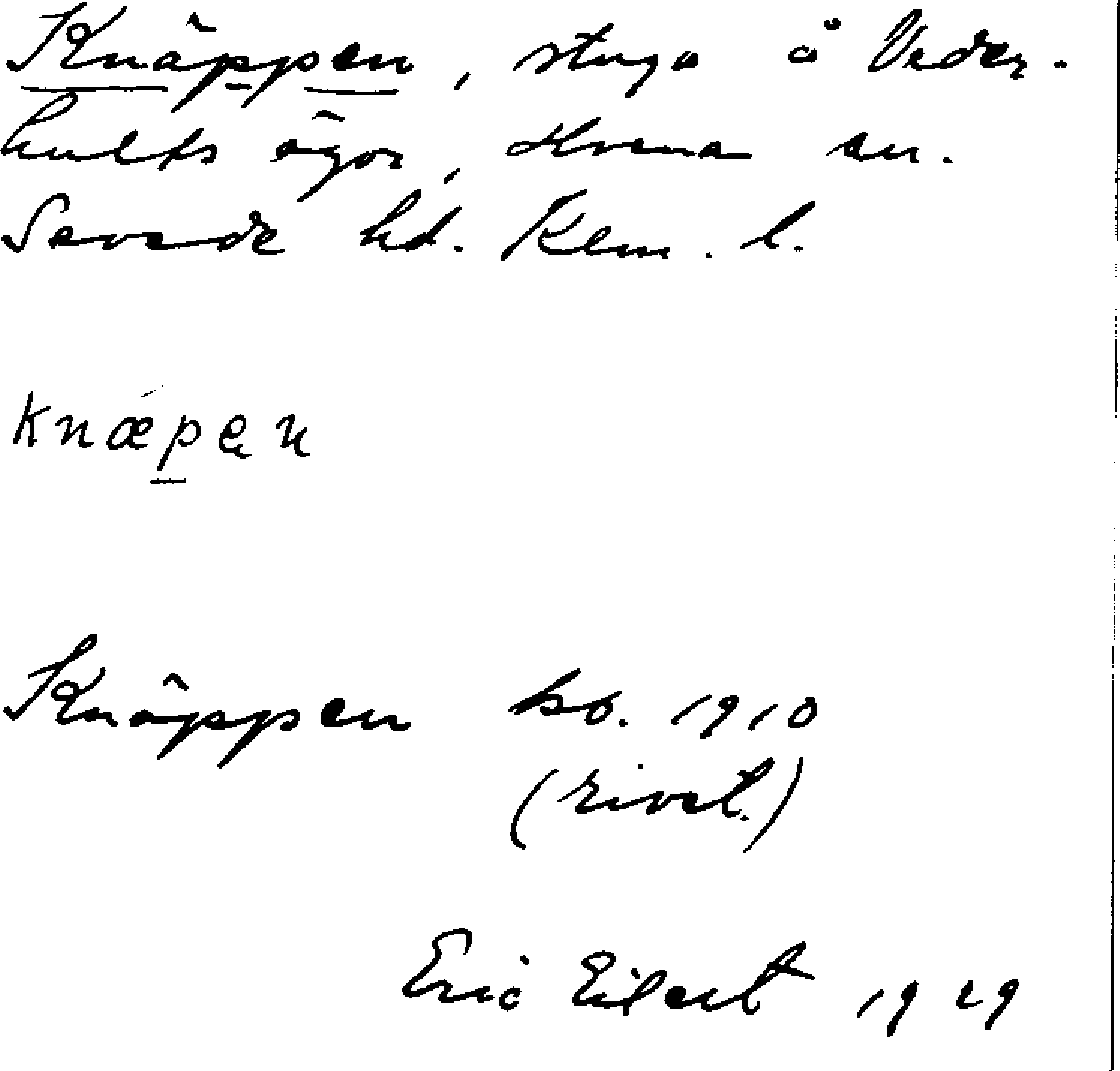 Knäppen, stuga å Veder-
hults ägor, Hvena sn.
Sevede hd. Kalm. l.
knæpen
Knäppen kb. 1910
(rivet.)
Eric Eilert 1929